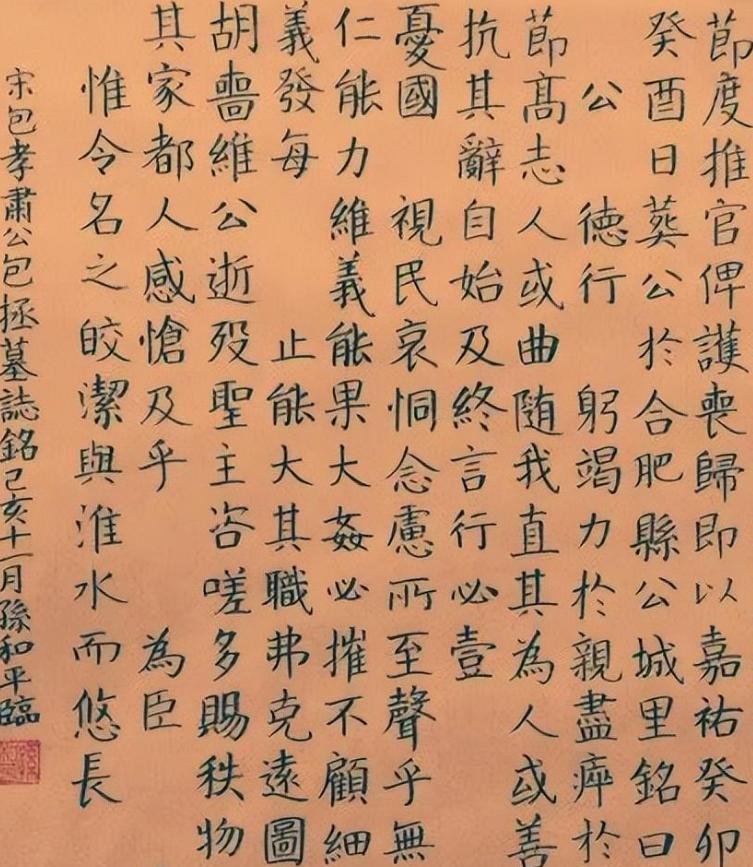 節度推官俾護喪歸即以嘉祐癸卯
癸酉日葬公於合肥縣公城里銘曰
公 德行 躬竭力於親盡瘁於
節髙志人或曲随我直其為人或善
抗其辭自始及終言行必壹
憂國 視民哀恫念慮所至聲乎無
仁能力維義能果大姦必摧不顧細
義發每 止能大其職弗克遠圖
胡嗇維公逝歿聖主咨嗟多賜秩物
其家都人感愴及乎 為臣
惟令名之皎潔與淮水而悠長
宋包孝肅公包拯墓誌銘己亥十一月孫和平臨